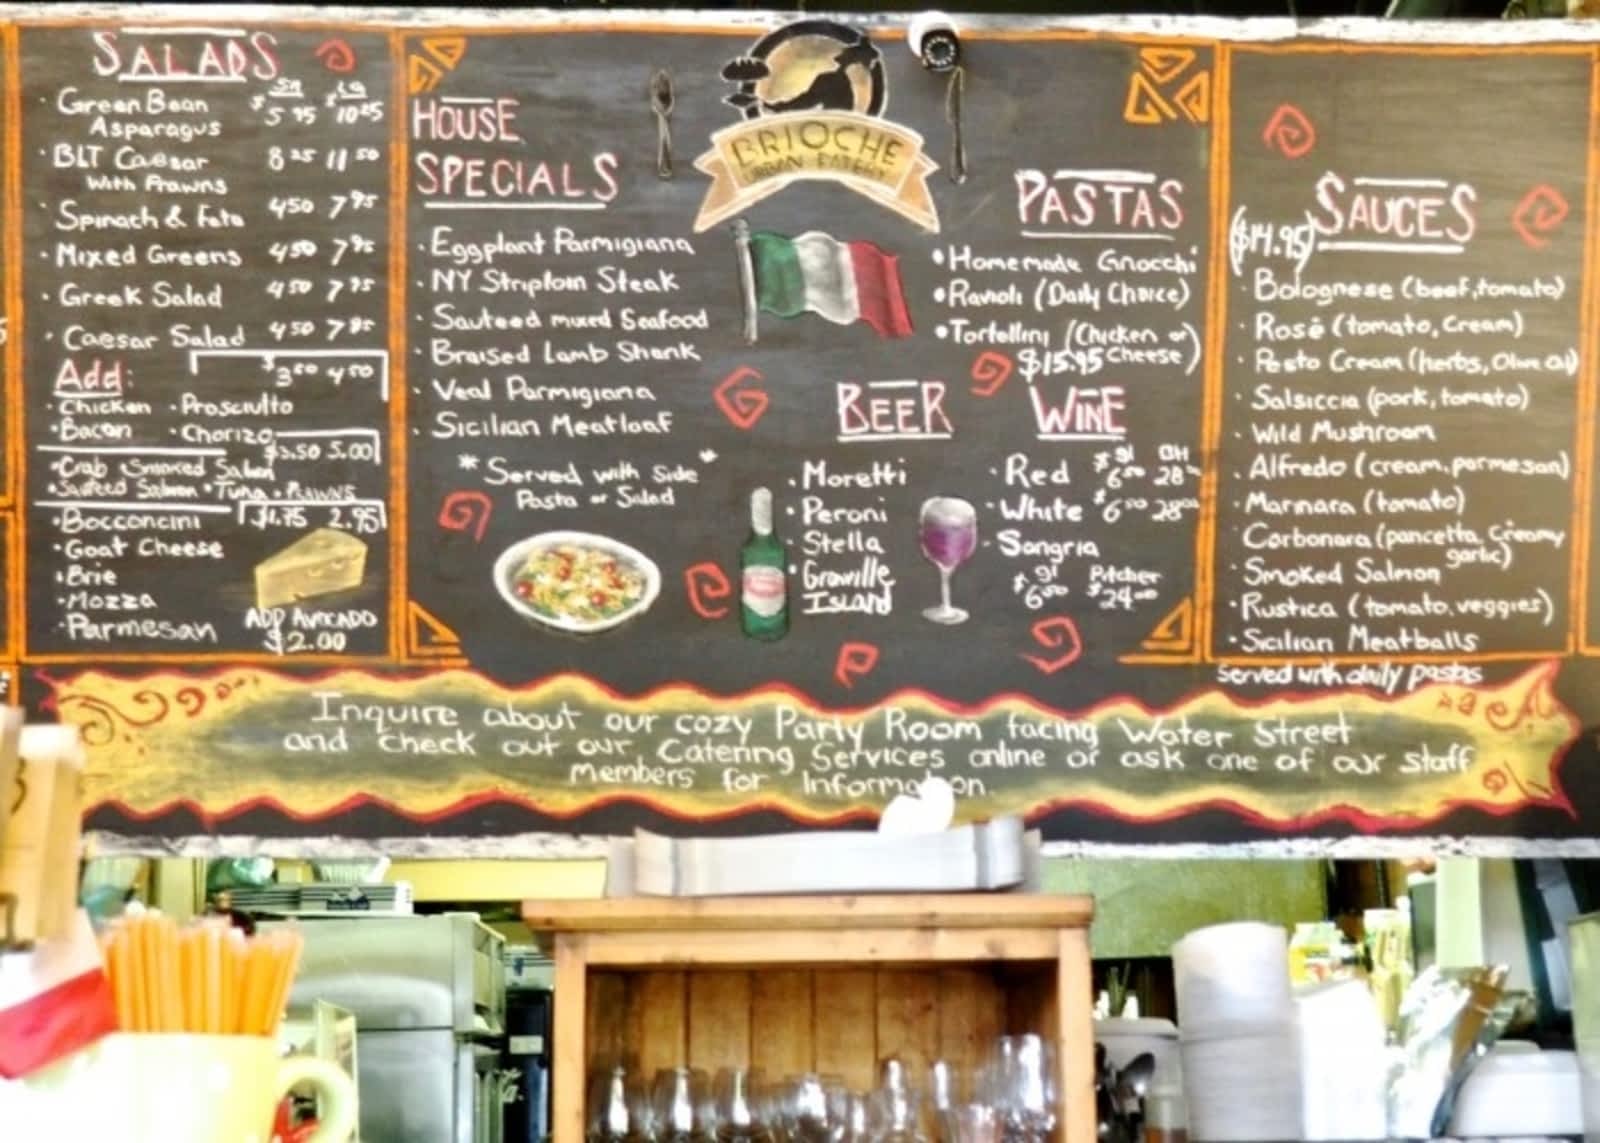 SALADS
SM LG
Green Bean $5 95 $10 25
Asparagus
BLT Caesar 8 25 11 50
With Prawns
Spinach & Feta 4 50 7 95
Mixed Greens 4 50 7 95
Greek Salad 4 50 7 95
Caesar Salad 4 50 7 95
Add: $3 00 4 00
Chicken Prosciutto
Bacon Chorizo
$3.50 5.00
Crab Smoked Salmon
Tuna Prawns
Bocconcini $1.75 2.95
Goat Cheese
Brie
Mozza
Parmesan
ADD AVOCADO
$2.00
HOUSE
SPECIALS
Eggplant Parmigiana
NY Striploin Steak
Sauteed mixed Seafood
Braised Lamb Shank
Veal Parmigiana
Sicilian Meatloaf
*Served with Side*
Pasta or Salad
BRIOCHE
URBAN EATERY
PASTAS
Homemade Gnocchi
Ravioli (Daily Choice)
Tortellini (Chicken or
$15.95 Cheese)
BEER
Moretti
Peroni
Stella
Granville
Island
WINE
gl Btl
Red $6 00 28 00
White $6 00 28 00
Sangria
gl Pitcher
$6 00 $24 00
SAUCES
($14.95)
Bolognese (beef, tomato)
Rosé (tomato, Cream)
Pesto Cream (herbs, Olive Oil)
Salsiccia (pork, tomato)
Wild Mushroom
Alfredo (cream, parmesan)
Marinara (tomato)
Carbonara (pancetta, Creamy
garlic)
Smoked Salmon
Rustica (tomato, veggies)
Sicilian Meatballs
Served with daily pastas
Inquire about our cozy Party Room facing Water Street
and check out our Catering Services online or ask one of our staff
members for